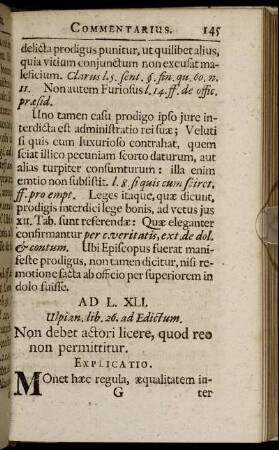 COMMENTARIUS. 145
delicta prodigus punitur, ut quilibet alius,
quia vicium conjunctum non excusat ma-
leficium. Clarus l. 5. sent. §. fin. qu. 60. n.
11. Non autem Furiosus l. 14. ff. de offic.
præsid.
Uno tamen casu prodigo ipso jure in-
terdicta est administratio rei suæ; Veluti
si quis cum luxurioso contrahat, quem
sciat illico pecuniam scorto daturum, aut
alias turpiter consumturum: illa enim
emtio non subsistit. l. 8. si quis cum sciret.
ff. pro empt. Leges itaque, quæ dicunt,
prodigis interdici lege bonis, ad vetus jus
xii. Tab. sunt referendæ: Quæ eleganter
confirmantur per c. veritatis, ext. de dol.
& contum. Ubi Episcopus fuerat mani-
feste prodigus, non tamen dicitur, nisi re-
motione facta ab officio per superiorem in
dolo fuisse.
AD L. XLI.
Ulpian. lib. 26. ad Edictum.
Non debet actori licere, quod reo
non permittitur.
EXPLICATIO.
Monet hæc regula, æqualitatem in-
G ter